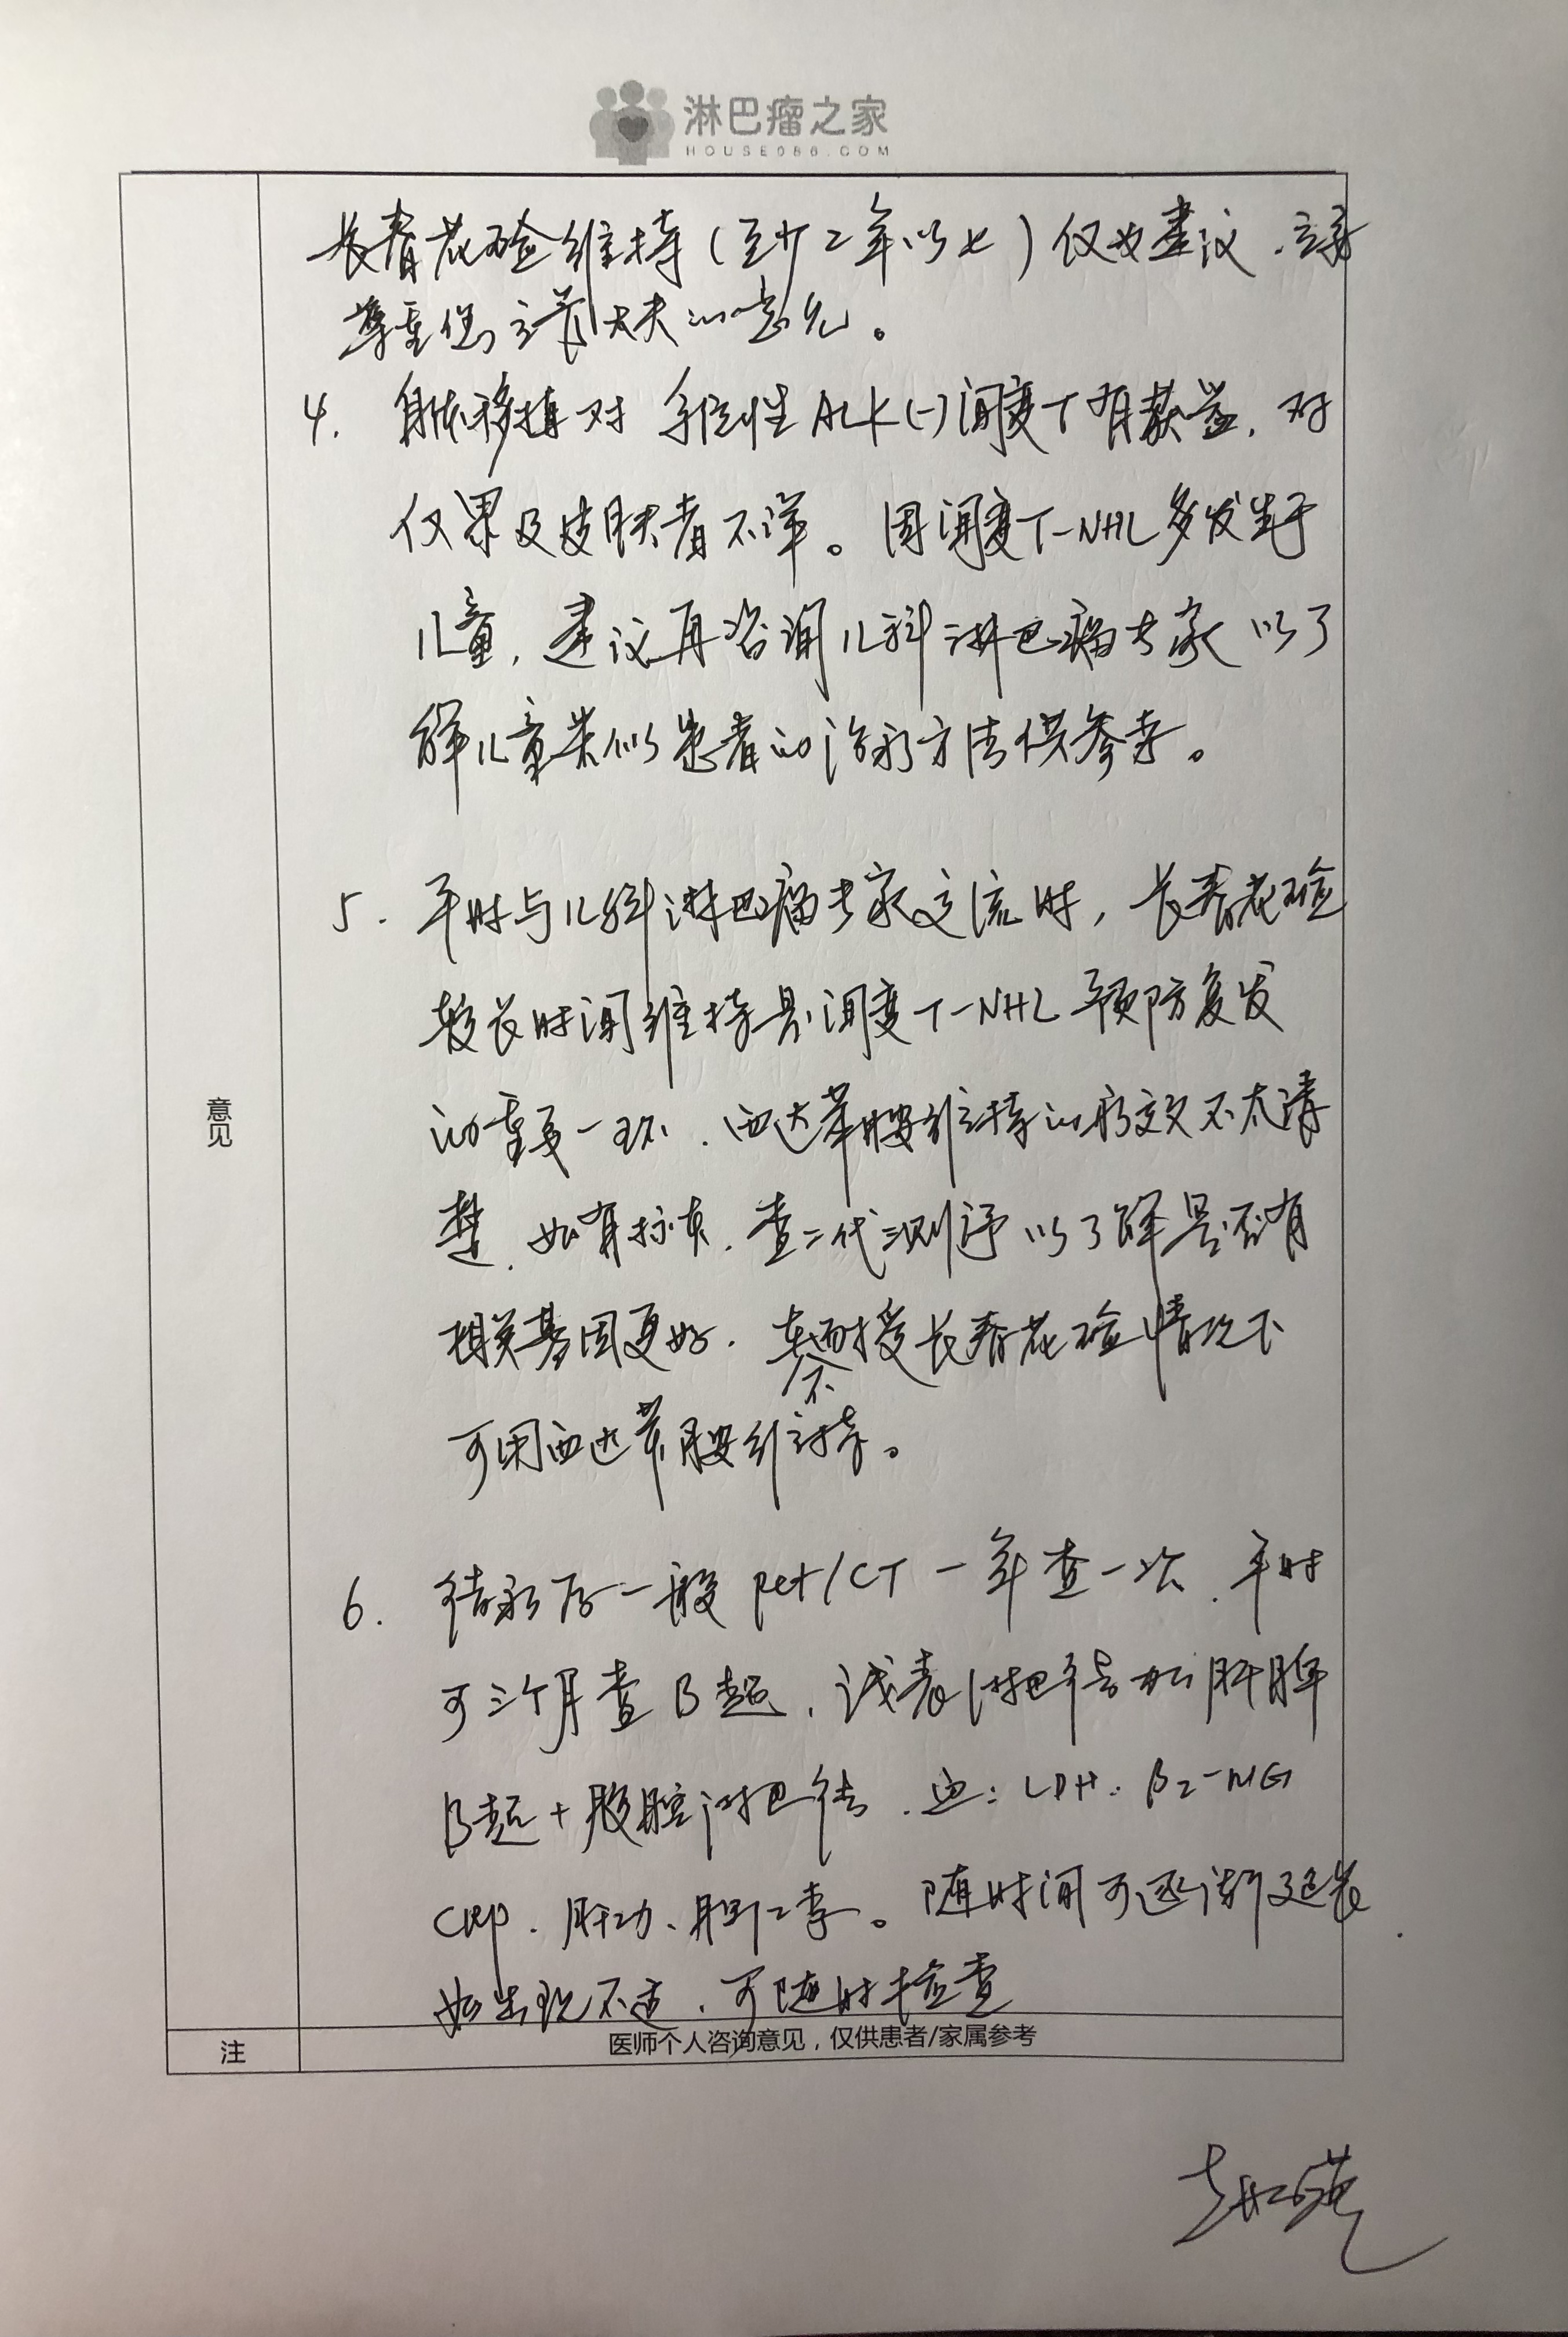 淋巴瘤之家
HOUSE086.COM
长春花碱维持(至少二年以上)仅为建议,主要
尊重您主诊大夫的意见。
4. 自体移植对系统性ALK(-)间变T有获益,对
仅累及皮肤者不详。因间变T-NHL多发生于
儿童,建议再咨询儿科淋巴瘤专家以了
解儿童类似患者的治疗方法供参考。
5. 平时与儿科淋巴瘤专家交流时,长春花碱
较长时间维持是间变T-NHL预防复发
的重要一环,西达苯胺维持的疗效不太清
楚,如有标本,查二代测序以了解是否有
相关基因更好.不耐受长春花碱情况下
可用西达苯胺维持。
意见
6. 结疗后一般pet/CT一年查一次,平时
可三个月查B超,浅表淋巴结和肝脾
B超+腹腔淋巴结,血:LDH.β2-MG
CRP.肝功、胆二季。随时间可逐渐延长.
如出现不适,可随时检查
注
医师个人咨询意见,仅供患者/家属参考